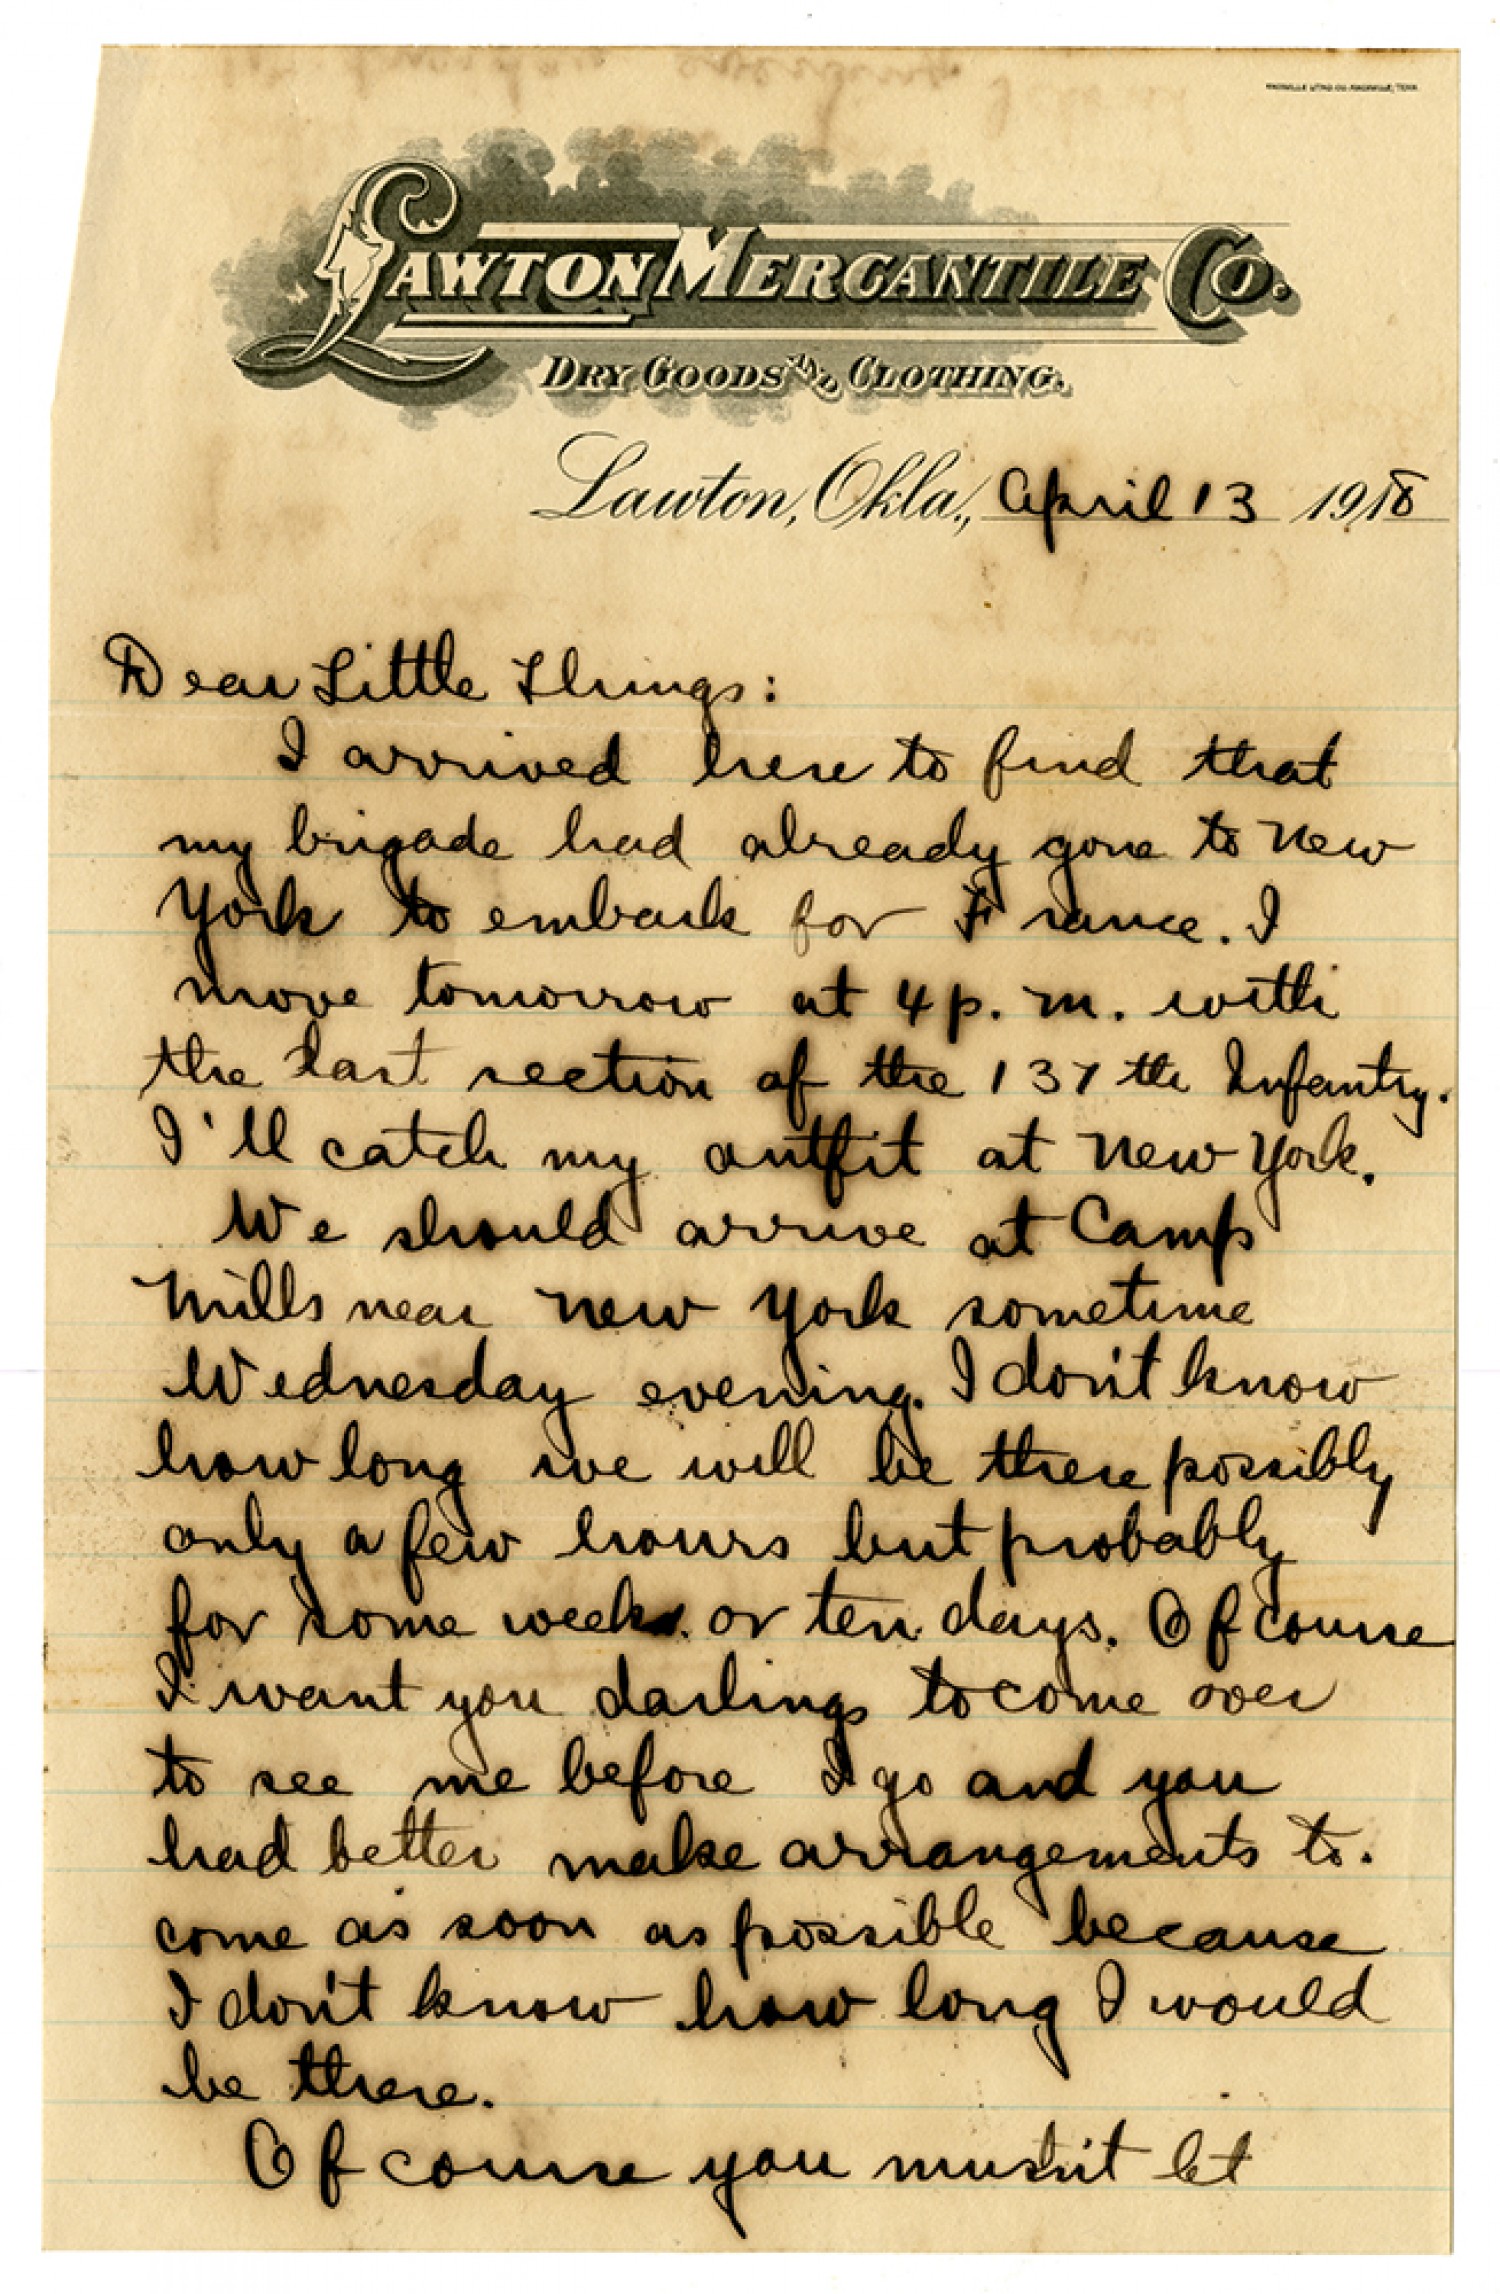 KNOXVILLE LITHO. CO. KNOXVILLE, TENN.
LAWTON MERCANTILE CO.
DRY GOODS AND CLOTHING.
Lawton, Okla., April 13 1918
Dear Little Things:
I arrived here to find that
my brigade had already gone to New
York to embark for France. I
move tomorrow at 4 p. m. with
the last section of the 137th Infantry.
I'll catch my outfit at New York.
We should arrive at Camp
Mills near New York sometime
Wednesday evening. I don't know
how long we will be there possibly
only a few hours but probably
for some week or ten days. Of course
I want you darlings to come over
to see me before I go and you
had better make arrangements to.
come as soon as possible because
I don't know how long I would
be there.
Of course you mustn't let